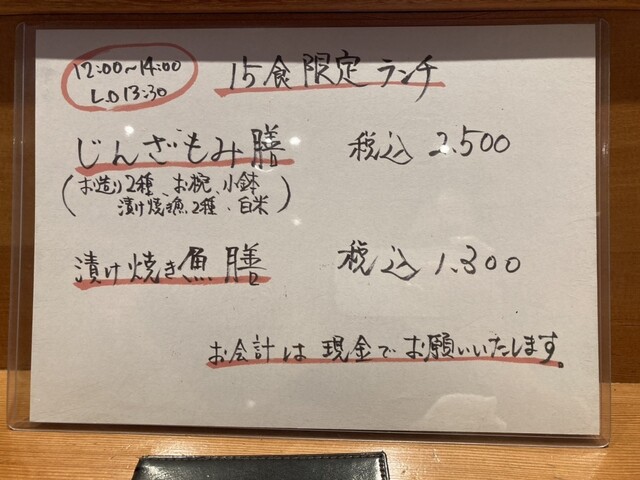 12:00~14:00
L.O 13:30
15食限定ランチ
じんざもみ膳 税込 2.500
(お造り2種、お椀、小鉢
漬け焼魚2種、白米)
漬け焼き魚膳 税込 1.300
お会計は現金でお願いいたします。